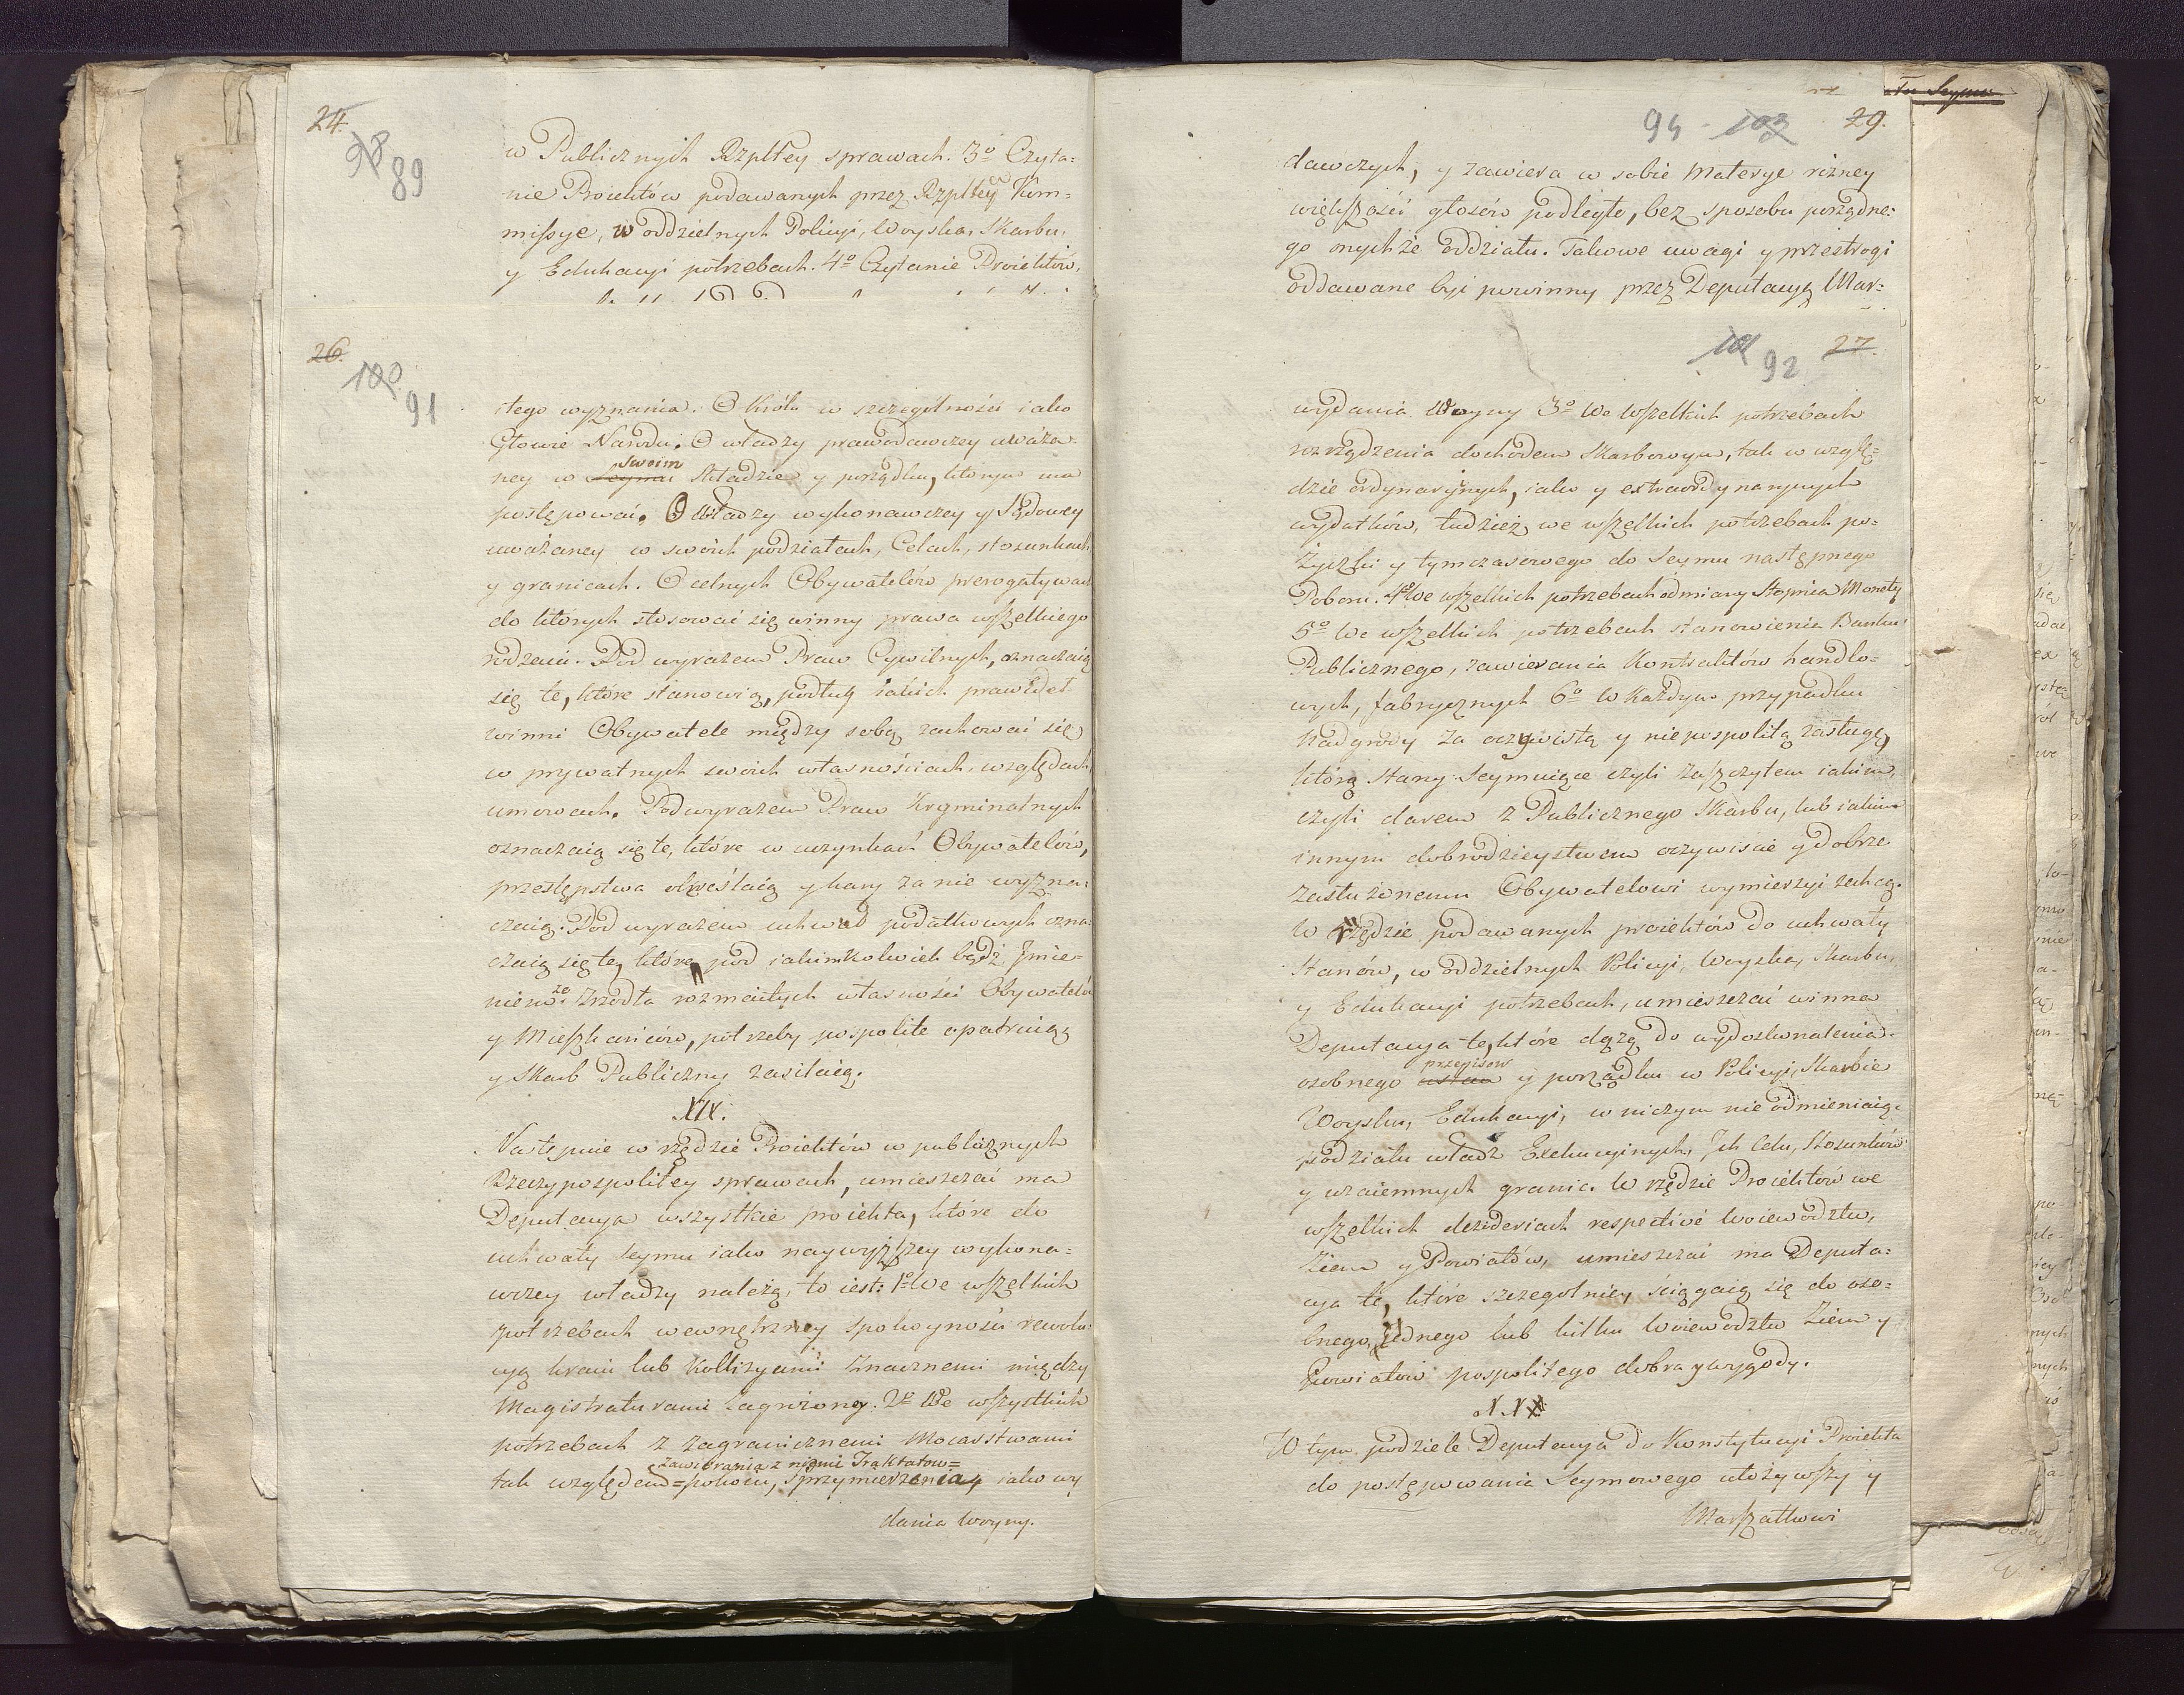 24.
98 89
w Publicznych Rzpltey sprawach. 3o Czyta=
nie Proiektów podawanych przez Rzpltey Kom=
missye, w oddzielnych Policyi, Woyska, Skarbu,
y Edukacyi potrzebach. 4o Czytanie Proiektów,
26.
100 91
stego wyznania. O Królu w szczególności iako
Głowie Narodu. O władzy prawodawczey uważa=
ney w Seymu swoim składzie y porządku, którym ma
postępować. O władzy wykonawczey y Sądowey
uważaney w swoich podziałach, Celach, stosunkach
y granicach. O celnych Obywatelów prerogatywach
do których stosować się winny prawa wszelkiego
rodzaiu. Pod wyrazem Praw Cywilnych, oznaczaią
się te, które stanowią, podług iakich prawideł
winni Obywatele między sobą zachować się
w prywatnych swoich własnościach, względach,
umowach. Pod wyrazem Praw Kryminalnych
oznaczaią się te, które w uczynkach Obywatelów,
przestępstwa określaią y kary za nie wyzna=
czaią. Pod wyrazem uchwał podatkowych ozna=
czaią się te, które pod iakimkolwiek bądź Jmie=
niem ze Zrzodła rozmaitych własności Obywatelów
y Mieszkańców, potrzeby pospolite opatruią
y Skarb Publiczny zasilaią.
XIX.
Następnie w rzędzie Proiektów w publicznych
Rzeczypospolitey sprawach, umieszczać ma
Deputacya wszystkie proiekta, które do
uchwały Seymu iako naywyższey wykona=
wczey władzy należą, to iest: 1o We wszelkich
potrzebach wewnętrzney spokoyności rewolu=
cyą kraiu lub Kollizyami znacznemi między
Magistraturami zagrożoney. 2o We wszystkich
potrzebach z zagranicznemi Mocarstwami
zawierania z niemi Traktatow=
tak względem = pokoiu, sprzymierzenia, iako wy
dania woyny.
94 - 103 29.
dawczych, y zawiera w sobie Materye rózney
większości głosów podległe, bez sposobu porządne=
go onychże oddziału. Takowe uwagi y przestrogi
oddawane być powinny przez Deputacyą Mar=
101 92 27.
wydania Woyny 3o We wszelkich potrzebach
rozrządzenia dochodem Skarbowym, tak w wzglę=
dzie ordynaryinych, iako y extraordynaryinych
wydatków, tudzież we wszelkich potrzebach po=
życzki y tymczasowego do Seymu następnego
Poboru. 4o We wszelkich potrzebach odmiany Stopnia Monety
5o We wszelkich potrzebach stanowienia Banku
Publicznego, zawierania Kontraktów handlo=
wych, fabrycznych 6o W każdym przypadku
Nadgrody za oczywistą y niepospolitą zasługę,
którą Stany Seymuiące czyli zaszczytem iakim,
czyli darem z Publicznego Skarbu, lub iakim
innym dobrodzieystwem oczywiście y dobrze
zasłużonemu Obywatelowi wymierzyć zechcą.
W rzędzie podawanych proiektów do uchwały
Stanów, w oddzielnych Policyi, Woyska, Skarbu,
y Edukacyi potrzebach, umieszczać winna
Deputacya te, które dążą do wydoskonalenia
osobnego ustaw przepisow y porządku w Policyi, Skarbie
Woysku, Edukacyi, w niczym nie odmieniaiąc
podziału władz Exekucyinych, Jch Celu, Stosunków
y wzaiemnych granic. W rzędzie Proiektów we
wszelkich dezideriach respectivé Woiewództw,
Ziem y Powiatów, umieszczać ma Deputa=
cya te, które szczególniey ściągaią się do oso=
bnego, iednego lub kilku Woiewództw Ziem y
Powiatów pospolitego dobra y wygody.
XX.
W tym podziele Deputacya do Konstytucyi Proiekta
do postępowania Seymowego ułożywszy y
Marszałkowi